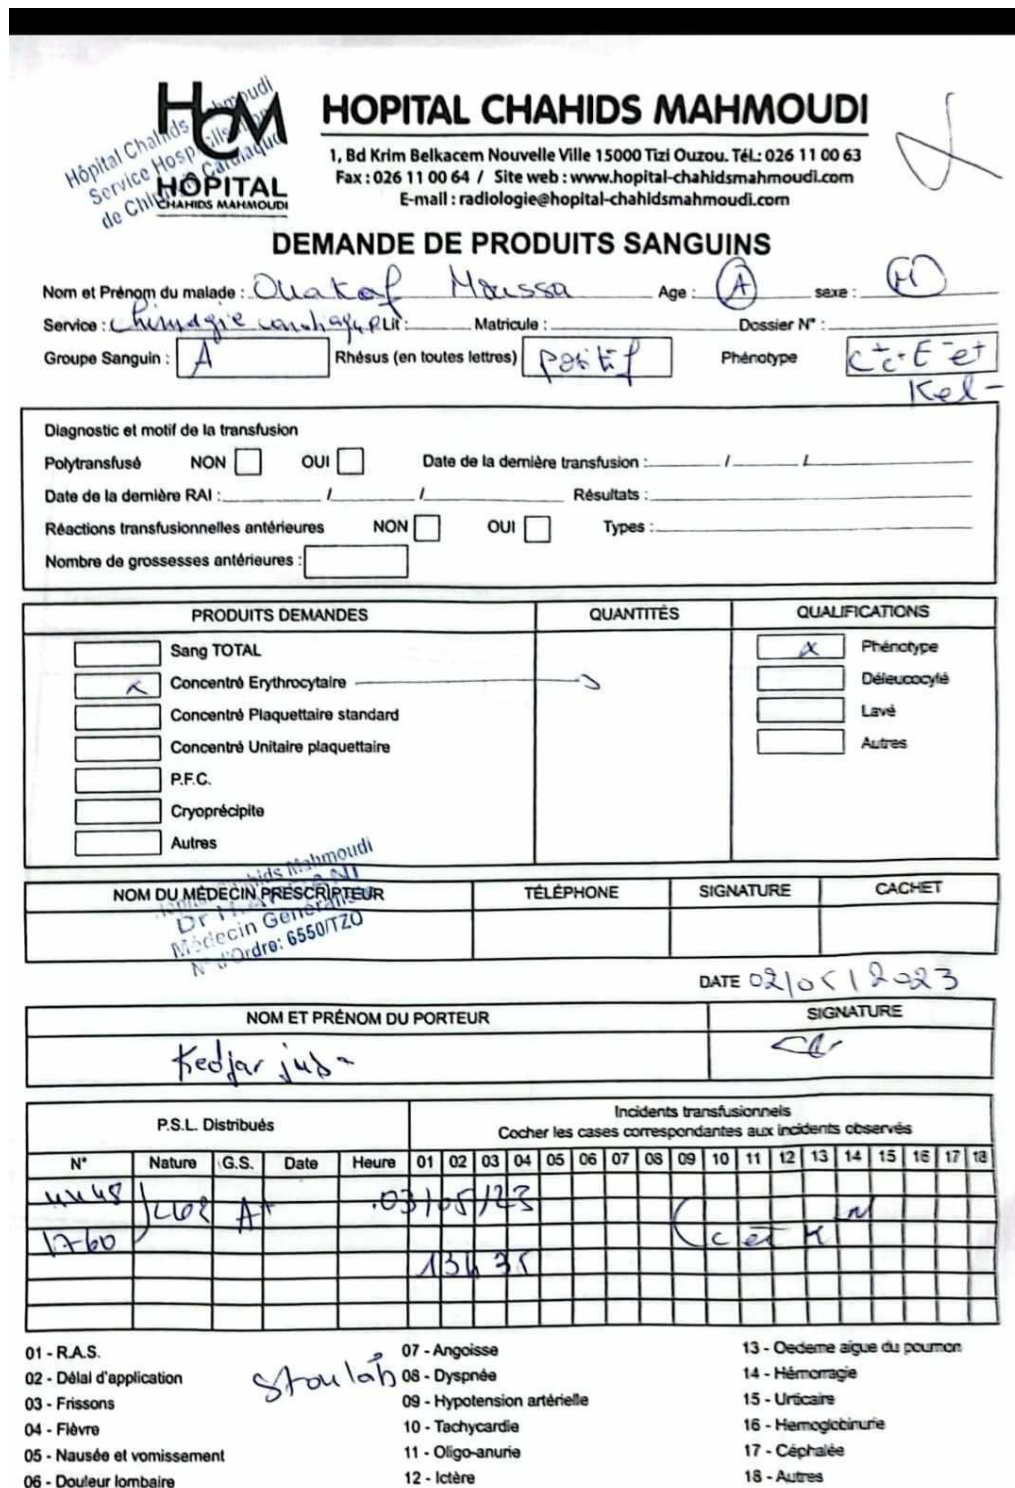 HCM
HÔPITAL
CHAHIDS MAHMOUDI
Hôpital Chahids Mahmoudi
Service
de
HOPITAL CHAHIDS MAHMOUDI
1, Bd Krim Belkacem Nouvelle Ville 15000 Tizi Ouzou. Tél.: 026 11 00 63
Fax : 026 11 00 64 / Site web : www.hopital-chahidsmahmoudi.com
E-mail : radiologie@hopital-chahidsmahmoudi.com
DEMANDE DE PRODUITS SANGUINS
Nom et Prénom du malade : Ouakaf Moussa Age : A sexe : H
Service : Chirurgie Lit : Matricule : Dossier N° :
Groupe Sanguin : A Rhésus (en toutes lettres) positif Phénotype C+c-E-e+
Kel-
Diagnostic et motif de la transfusion
Polytransfusé NON OUI Date de la dernière transfusion : / /
Date de la dernière RAI : / / Résultats :
Réactions transfusionnelles antérieures NON OUI Types :
Nombre de grossesses antérieures :
PRODUITS DEMANDES QUANTITÉS QUALIFICATIONS
Sang TOTAL x Phénotype
x Concentré Erythrocytaire Déleucocyté
Concentré Plaquettaire standard Lavé
Concentré Unitaire plaquettaire Autres
P.F.C.
Cryoprécipite
Autres
NOM DU MÉDECIN PRESCRIPTEUR TÉLÉPHONE SIGNATURE CACHET
Mahmoudi
Dr
Médecin Généraliste
N° d'Ordre: 6550/TZO
DATE 02/05/2023
NOM ET PRÉNOM DU PORTEUR SIGNATURE
Kedjar juba
P.S.L. Distribués Incidents transfusionnels
Cocher les cases correspondantes aux incidents observés
N° Nature G.S. Date Heure 01 02 03 04 05 06 07 08 09 10 11 12 13 14 15 16 17 18
A+ 03/05/23
1760
13h35
01 - R.A.S. 07 - Angoisse 13 - Oedeme aigue du poumon
02 - Délai d'application 08 - Dyspnée 14 - Hémorragie
03 - Frissons 09 - Hypotension artérielle 15 - Urticaire
04 - Fièvre 10 - Tachycardie 16 - Hemoglobinurie
05 - Nausée et vomissement 11 - Oligo-anurie 17 - Céphalée
06 - Douleur lombaire 12 - Ictère 18 - Autres